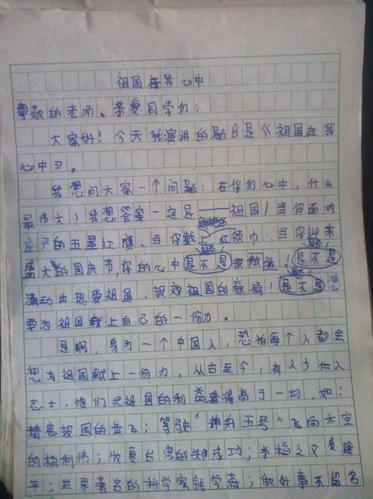 祖国在我心中
尊敬的老师、亲爱同学们:
大家好!今天我演讲的题目是《祖国在我
心中》。
我想问大家一个问题:在你们心中,什么
最伟大?我想答案一定是——祖国!当你面对
的五星红旗、当你戴上红领巾、当你迎来
盛大的国庆节,你的心中是不是很激动!是不是
涌动出热爱祖国、报效祖国的豪情!是不是想
要为祖国献上自己的一份力。
是啊,身为一个中国人,恐怕每个人都会
想为祖国献上一份力,从古至今,有多少仁人
志士,他们把祖国的利益看得高于一切,如:
精忠报国的岳飞;驾驶"神舟五号"飞向太空
的杨利伟;收复台湾的郑成功;水稻之父袁隆
平;世界著名的科学家钱学森;做好事不留名